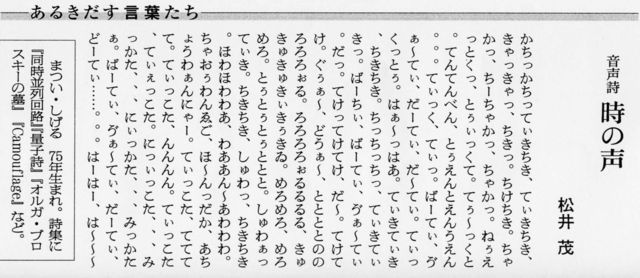 あるきだす言葉たち
音声詩
時の声
松井 茂
かちっかちってぃきちき、てぃきちき、
きゃっきゃっ、ちきっ。ちけちき。ちゃ
かっ、ちーちゃかっ、ちゃかっ。ねぅえ
っとくっ、とぅいっくて。てぅ〜っくと
。てんてんべん、とぅえんとえんうえん
。。。てぃっく、てぃっっ。ばーてぃ、ゔ
ぁ〜てぃ、だーてぃ、だ〜てぃ。てぃっ
くっとぅ。はぁ〜っはあ。てぃきてぃき
、ちきちき。ちっちっちっ、てぃきてぃ
きっ。ばーちぃ、ばーてぃ、ゔぁ〜てぃ
。だっ。てけってけてけ、だ〜。てけて
け。ぐぅぁ〜、どうぁ〜、ととととのの
ろろろぉる。ろろろろぉるるるる、きゅ
きゅきゅぃきぃきぅきゐ。めろめろ、めろ
めろ。とぅとぅとぅととと。しゅわぁっ
てぃき。ちきちき、しゅわっ、ちきちき
ちゃおぅわんゑご、ほ〜んっだか、あち
。ほわほわわあ、わああん〜あわわわ。
ょうわぁんにゃー。てぃっこた、ててて
て。てぃっこた。んんんん。てぃっこた
、てぃぇっこた。にっぃっこた、、、み
っかた、、、にぃっかた、、、みっかた
ぁ。ばーてぃ、ゔぁ〜てぃ、だーてぃ、
どーてぃ……。。。はーはー、は〜〜〜
まつい・しげる　75年生まれ。詩集に
『同時並列回路』『量子詩』『オルガ・ブロ
スキーの墓』『Camouflage』など。